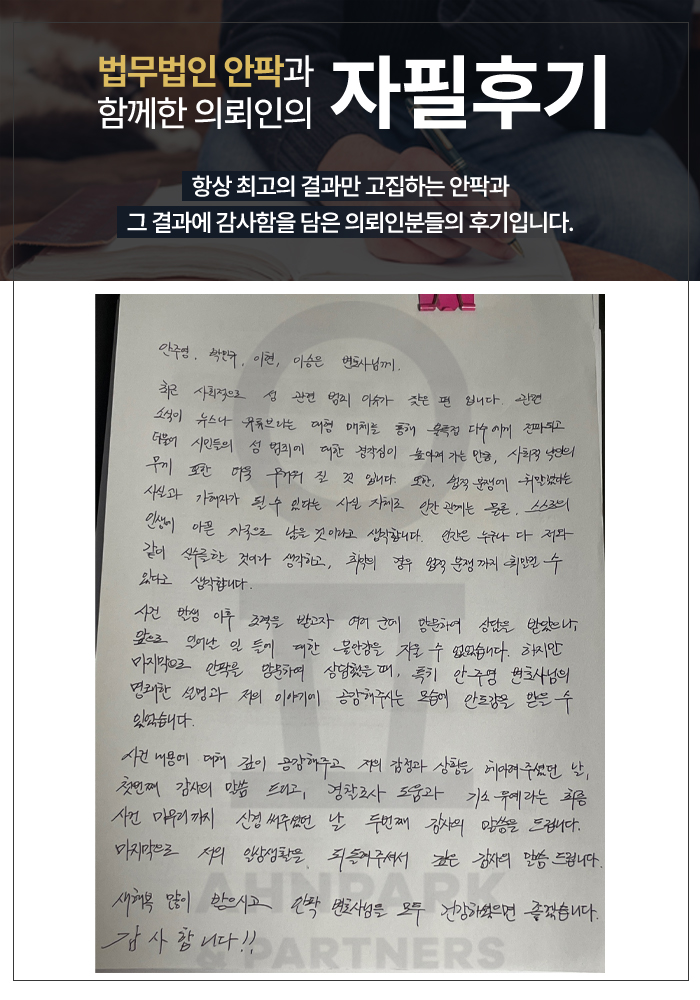 법무법인 안팍과
함께한 의뢰인의
자필후기
항상 최고의 결과만 고집하는 안팍과
그 결과에 감사함을 담은 의뢰인분들의 후기입니다.
안주영, 박민규, 이현, 이승은 변호사님께.
최근 사회적으로 성 관련 범죄 이슈가 잦은 편 입니다. 관련
소식이 뉴스나 유튜브라는 대형 매체를 통해 불특정 다수에게 전파되고
더불어 시민들의 성 범죄에 대한 경각심이 높아져 가는 만큼, 사회적 낙인의
무게 또한 더욱 무거워 질 것 입니다. 또한, 법적 분쟁에 휘말렸다는
사실과 가해자가 될 수 있다는 사실 자체로 인간관계는 물론, 스스로의
인생에 아픈 자국으로 남을 것이라고 생각합니다. 인간은 누구나 다 저와
같이 실수를 할 것이라 생각하고, 최악의 경우 법적 분쟁까지 휘말릴 수
있다고 생각합니다.
사건 발생 이후 조력을 받고자 여러 군데 방문하여 상담을 받았으나,
앞으로 일어난 일 들에 대한 불안감을 지울 수 없었습니다. 하지만
마지막으로 안팍을 방문하여 상담했을 때, 특히 안주영 변호사님의
명쾌한 설명과 저의 이야기에 공감해주시는 모습에 안도감을 받을 수
있었습니다.
사건 내용에 대해 깊이 공감해주고 저의 감정과 상황을 헤아려주셨던 날,
첫번째 감사의 말씀 드리고, 경찰조사 도움과 기소유예라는 최종
사건 마무리까지 신경 써주셨던 날 두번째 감사의 말씀을 드립니다.
마지막으로 저의 일상생활을 되돌려주셔서 깊은 감사의 말씀 드립니다.
새해복 많이 받으시고 안팍 변호사님들 모두 건강하셨으면 좋겠습니다.
감사합니다!!
AHNPARK
& PARTNERS